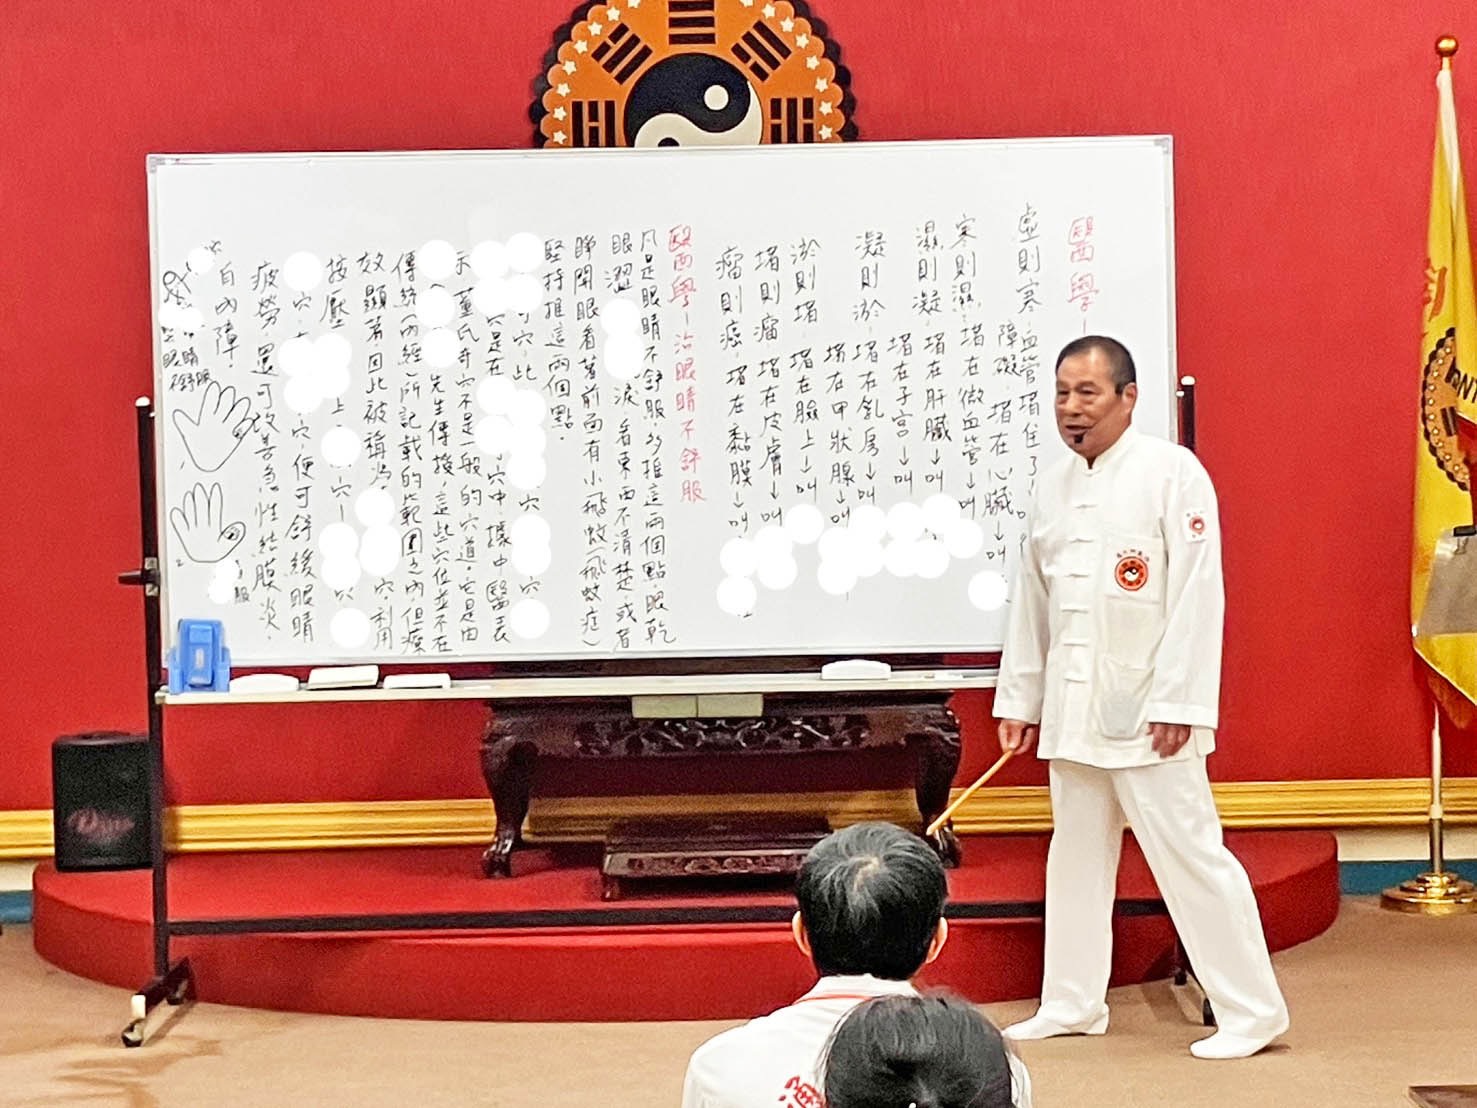 醫西學-
虛則寒-血管堵住了-
障礙.堵在心臟→叫
寒則濕.堵在微血管→叫
濕則凝.堵在肝臟→叫
堵在子宮→叫
凝則淤-堵在乳房→叫
堵在甲狀腺→叫
淤則堵.堵在臉上→叫
堵則瘤 堵在皮膚→叫
瘤則癌.堵在黏膜→叫
醫西學-治眼睛不舒服
凡是眼睛不舒服.多推這兩個點.眼乾
眼澀 淚.看東西不清楚.或者
睜開眼看著前面有小飛蚊(飛蚊症)
堅持推這兩個點.
穴.此 穴 穴
穴是在 穴中.據中醫表
示 董氏奇穴不是一般的穴道.它是由
先生傳授,這些穴位並不在
傳統(內經)所記載的範圍之內.但療
效顯著因此被稱為 穴.利用
按壓 上 穴- 穴
穴. 穴.便可舒緩眼睛
疲勞.還可改善急性結膜炎.
白內障.
眼睛
舒服
1
2
服